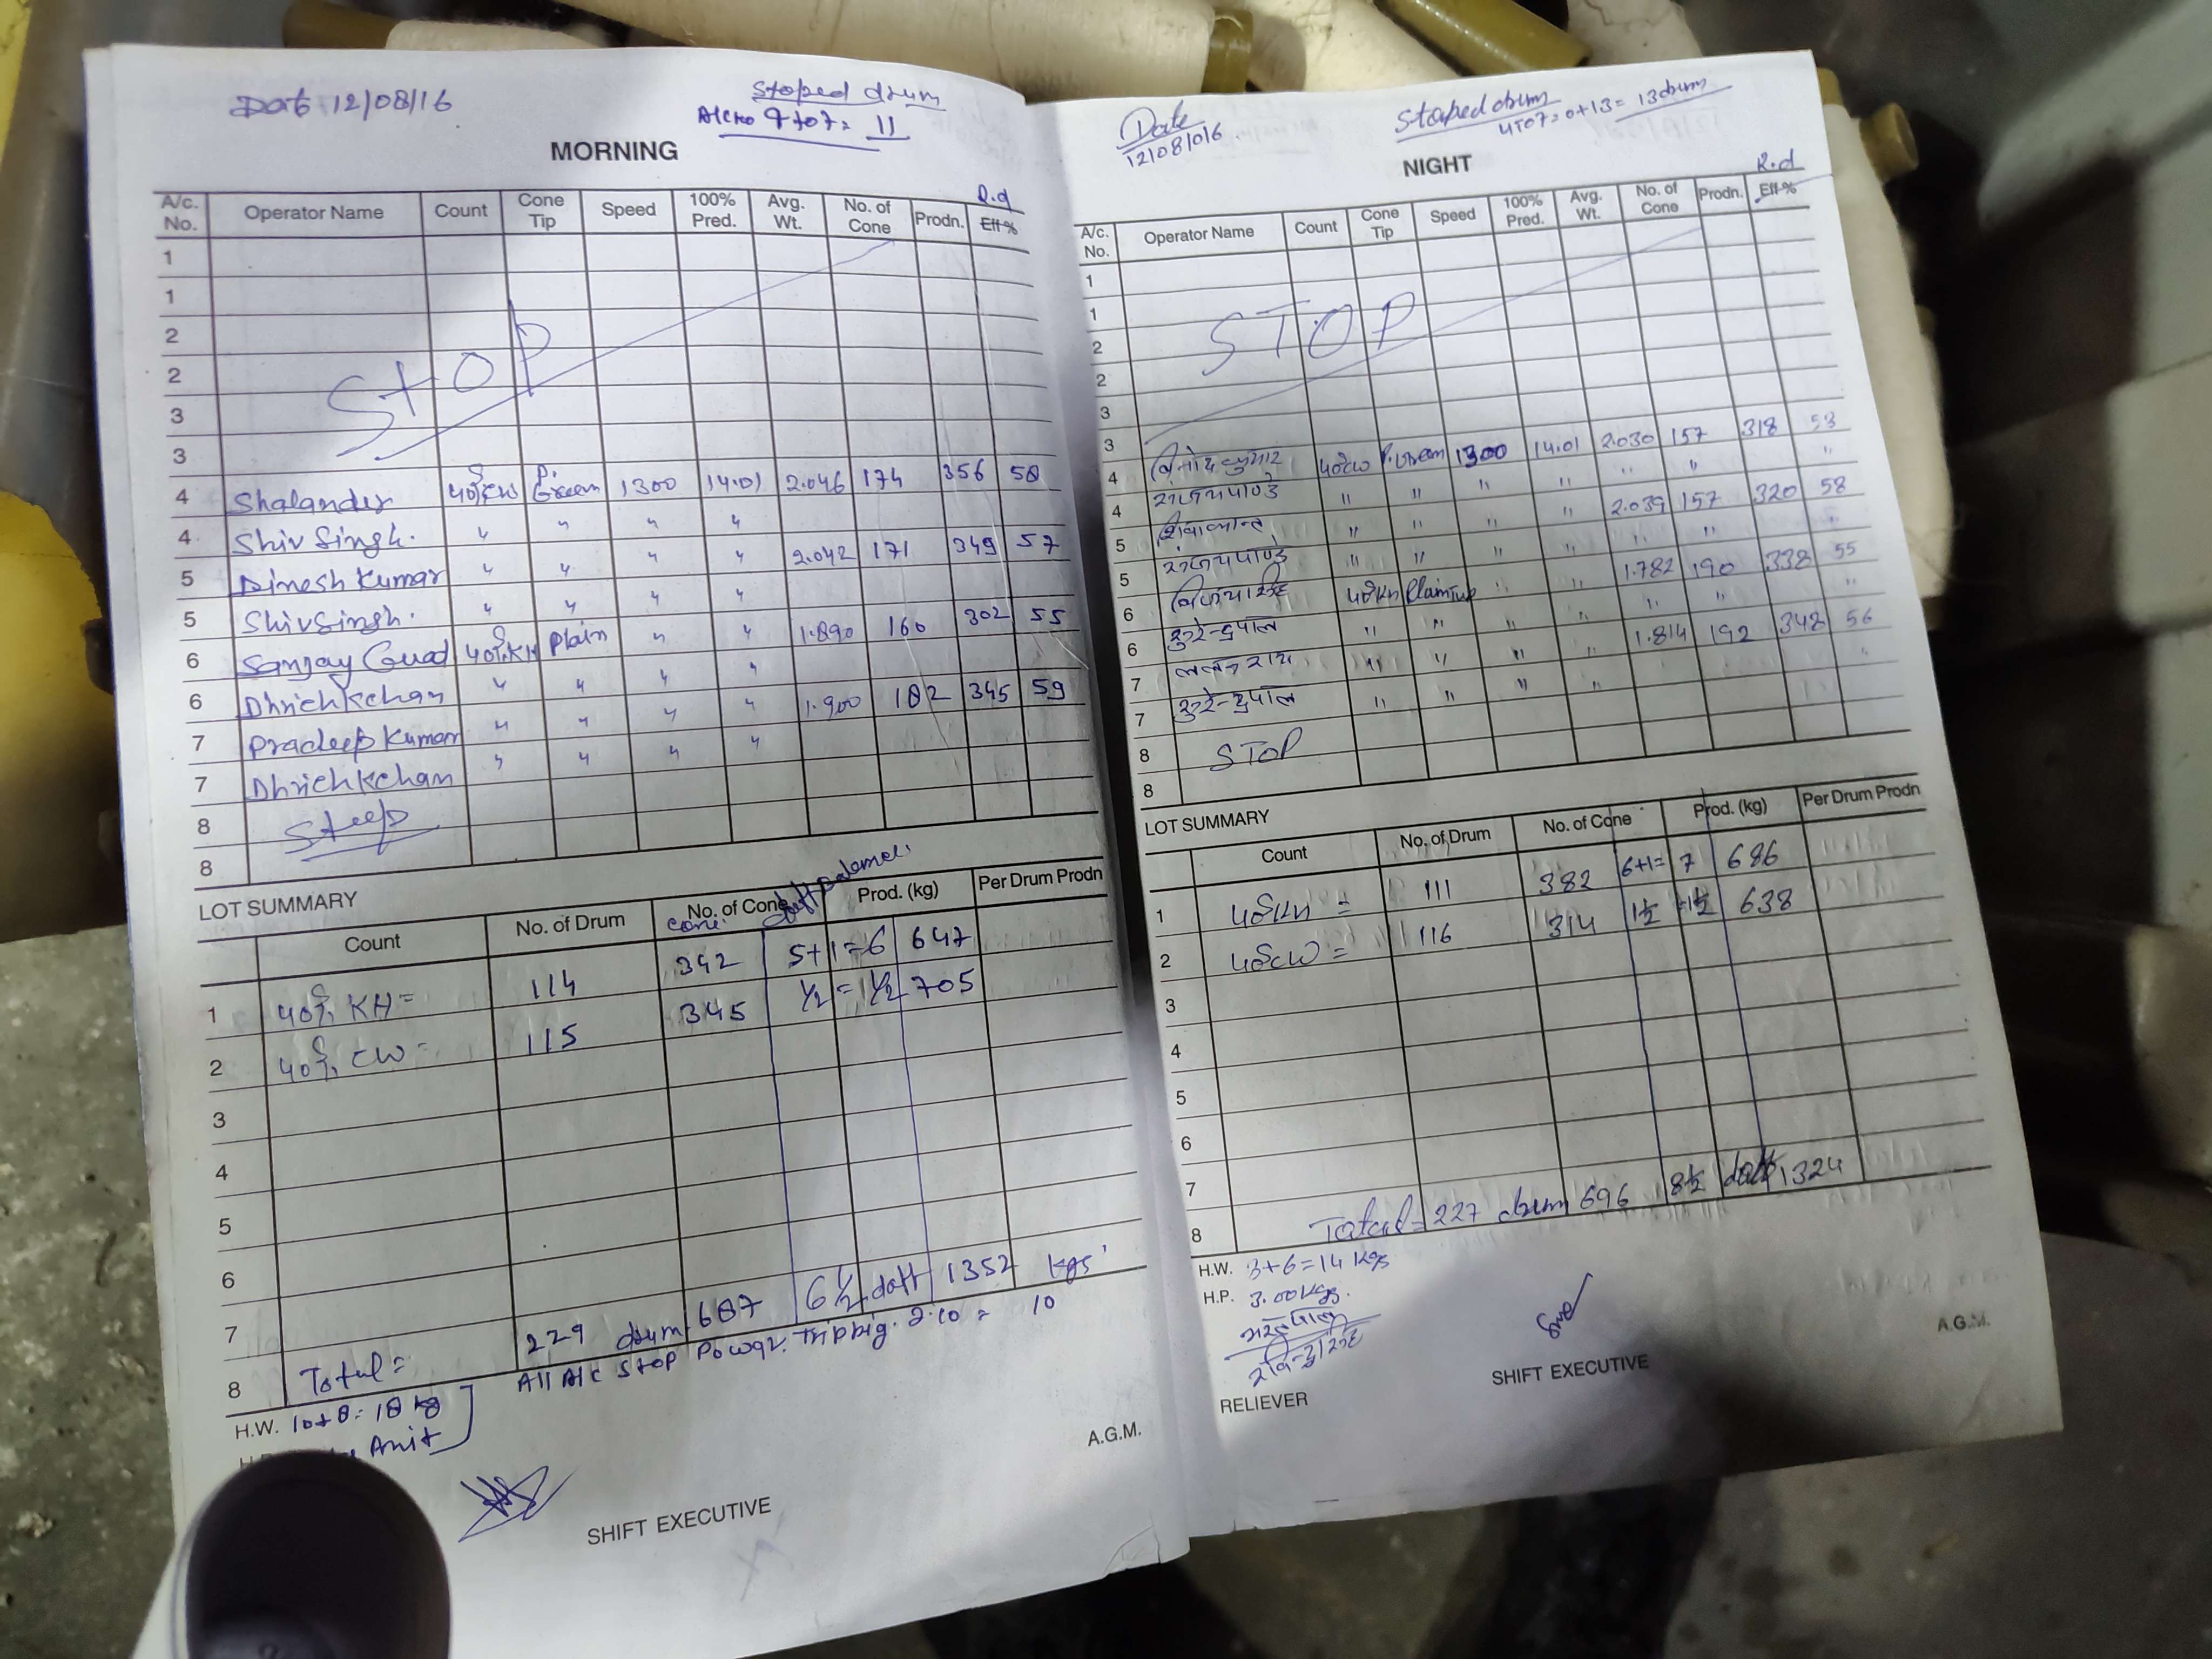 Date 12/08/16
Stoped drum
A/c no 4 to 7 = 11
MORNING
A/c. No. Operator Name Count Cone Tip Speed 100% Pred. Avg. Wt. No. of Cone Prodn. Eff-% R.d
1
1
2
2
3
3
STOP
4 Shalander 40s CW P. Green 1300 14.01 2.046 174 356 58
4 Shiv Singh. " " " "
5 Dinesh Kumar " " " " 2.042 171 349 57
5 Shiv Singh. " " " "
6 Sanjay Guad 40s KH Plain " " 1.890 160 302 55
6 Dhrichkchan " " " "
7 Pradeep Kumar " " " " 1.900 182 345 59
7 Dhrichkcham " " " "
8 Stop
8
LOT SUMMARY
Count No. of Drum No. of Cone Prod. (kg) Per Drum Prodn
cone
1 40s KH = 114 342 5+1=6 647
2 40s CW = 115 345 1/2 = 1/2 705
3
4
5
6
7
8 Total = 229 drum 687 6 1/2 doff 1352 kgs
All A/c Stop Power Tripping. 2.10 = 10
H.W. 10+8=18 kg
Anit
SHIFT EXECUTIVE
A.G.M.
Date
12/08/016
Stoped drum
4 to 7 = 0+13 = 13 drum
NIGHT
A/c. No. Operator Name Count Cone Tip Speed 100% Pred. Avg. Wt. No. of Cone Prodn. Eff-% R.d
1
1
2
2
3
3
STOP
4 विनोद कुमार 40s CW P. Green 1300 14.01 2.030 157 318 53
4 संजय पाण्डे " " " " " " "
5 शिवाकान्त " " " " 2.039 157 320 58
5 संजय पाण्डे " " " " " " "
6 40s KH Plain " " 1.782 190 338 55
6 सुरेन्द्रपाल " " " " " " "
7 ललन राय " " " " 1.814 192 348 56
7 सुरेन्द्रपाल " " " " "
8 STOP
8
LOT SUMMARY
Count No. of Drum No. of Cone Prod. (kg) Per Drum Prodn
1 40s KH = 111 382 6+1= 7 686
2 40s CW = 116 314 1 1/2 = 1 1/2 638
3
4
5
6
7
8 Total = 227 drum 696 8 1/2 doff 1324
H.W. 3+6=14 Kgs
H.P. 3.00 Kgs.
RELIEVER
SHIFT EXECUTIVE
A.G.M.